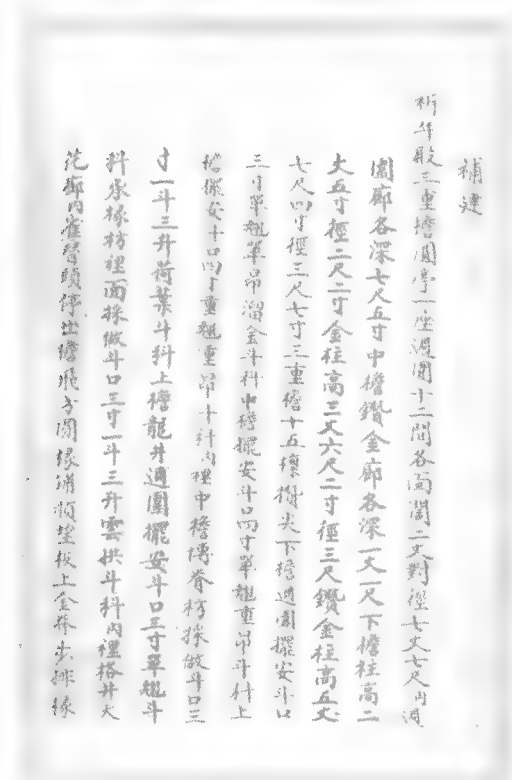 補建
祈年殿三重擔圓亭一座週圍十二間各面闊二丈對徑七丈七尺內週
圍廊各深七尺五寸中檐鑽金廊各深一丈一尺下檐柱高二
丈五寸徑二尺二寸金柱高三丈六尺二寸徑三尺鑽金柱高五丈
七尺四寸徑三尺七寸三重檐十五檁攢尖下檐週圍擺安斗口
三寸單翹單昂溜金斗科中檐擺安斗口四寸單翹重昂斗科上
檐擺安斗口四寸重翹重昂斗科內裡中檐博脊枋採做斗口三
寸一斗三升荷葉斗科上檐龍井週圍擺安斗口三寸單翹斗
科承椽枋裡面採做斗口三寸一斗三升雲拱斗科內裡搭井天
花廊內雀替頭停出檐飛子圓椽滿頂望板上金